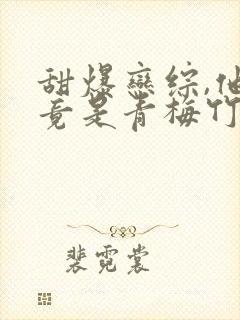 甜爆恋综,他
竟是青梅竹
裴霓裳